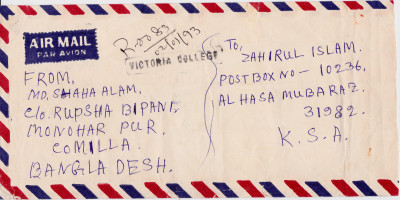 AIR MAIL
PAR AVION
R-0083
02/01/93
VICTORIA COLLEGE
FROM,
MD, SHAHA ALAM,
C/o. RUPSHA BIPANI,
MONOHAR PUR,
COMILLA.
BANGLADESH.
To,
ZAHIRUL ISLAM.
POST BOX NO- 10236,
AL HASA MUBARAZ.
31982.
K.S.A.